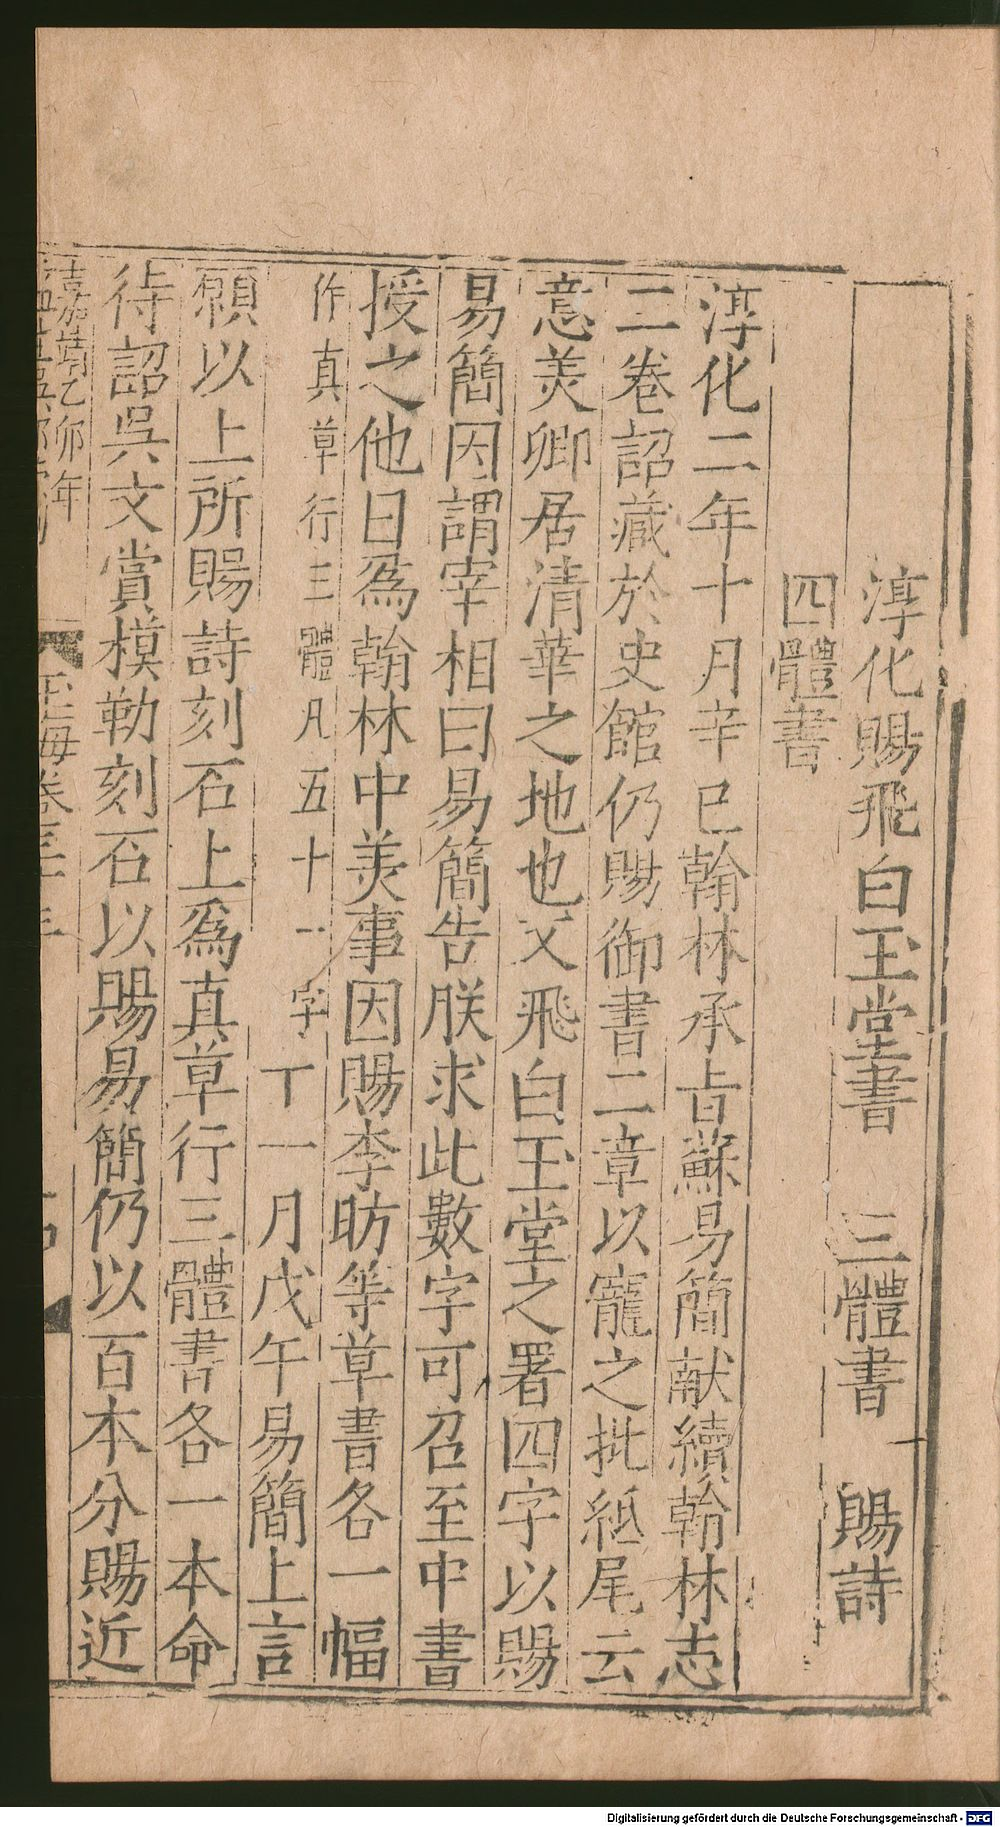 淳化賜飛白玉堂書 三體書 賜詩
四體書
淳化二年十月辛巳翰林承旨蘇易簡献續翰林志
二卷詔藏於史館仍賜御書二章以寵之批紙尾云
意美卿居清華之地也又飛白玉堂之署四字以賜
易簡因謂宰相曰易簡告朕求此數字可召至中書
授之他日爲翰林中美事因賜李昉等草書各一幅
作真草行三體凡五十一字丁一月戊午易簡上言
願以上所賜詩刻石上爲真草行三體書各一本命
待詔吳文賞模勒刻石以賜易簡仍以百本分賜近
嘉靖乙卯年
玉海卷三十三
Digitalisierung gefördert durch die Deutsche Forschungsgemeinschaft - DFG